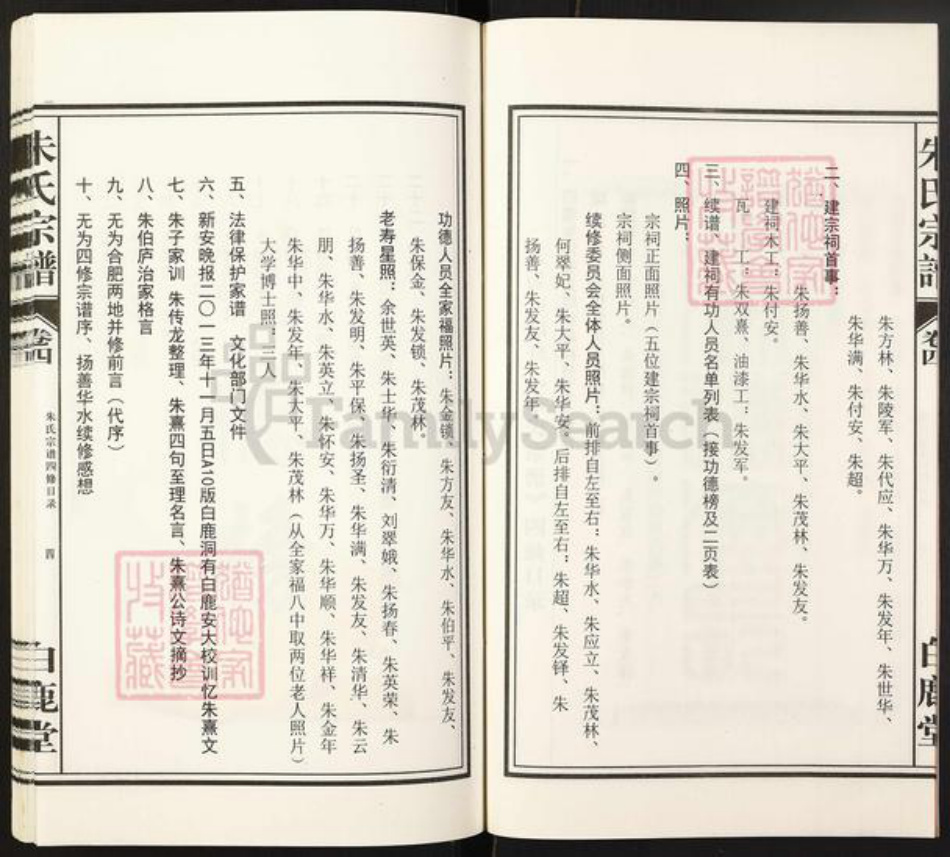 朱方林、朱陵军、朱代应、朱华万、朱发年、朱世华、
朱华满、朱付安、朱超。
二、建宗祠首事：
朱扬善、朱华水、朱大平、朱茂林、朱发友。
建祠木工：朱付安。
瓦　工：朱双熹、油漆工：朱发军。
三、续谱、建祠有功人员名单列表（接功德榜及二页表）
四、照片：
宗祠正面照片（五位建宗祠首事）。
宗祠侧面照片。
续修委员会全体人员照片：前排自左至右：朱华水、朱应立、朱茂林、
何翠妃、朱大平、朱华安、后排自左至右：朱超、朱发铎、朱
扬善、朱发友、朱发年。
朱氏宗谱
卷四
白鹿堂
功德人员全家福照片：朱金锁、朱方友、朱华水、朱伯平、朱发友、
朱保金、朱发锁、朱茂林
老寿星照：余世英、朱士华、朱衍清、刘翠娥、朱扬春、朱英荣、朱
扬善、朱发明、朱平保、朱扬圣、朱华满、朱发友、朱清华、朱云
朋、朱华水、朱英立、朱怀安、朱华万、朱华顺、朱华祥、朱金年
朱华中、朱发年、朱大平、朱茂林（从全家福八中取两位老人照片）
大学博士照：三人
五、法律保护家谱　文化部门文件
六、新安晚报二〇一三年十一月五日A10版白鹿洞有白鹿安大校训忆朱熹文
七、朱子家训、朱传龙整理、朱熹四句至理名言、朱熹公诗文摘抄
八、朱伯庐治家格言
九、无为合肥两地并修前言（代序）
十、无为四修宗谱序、扬善华水续修感想
朱氏宗谱
卷四
朱氏宗谱四修目录
四
白鹿堂
FamilySearch